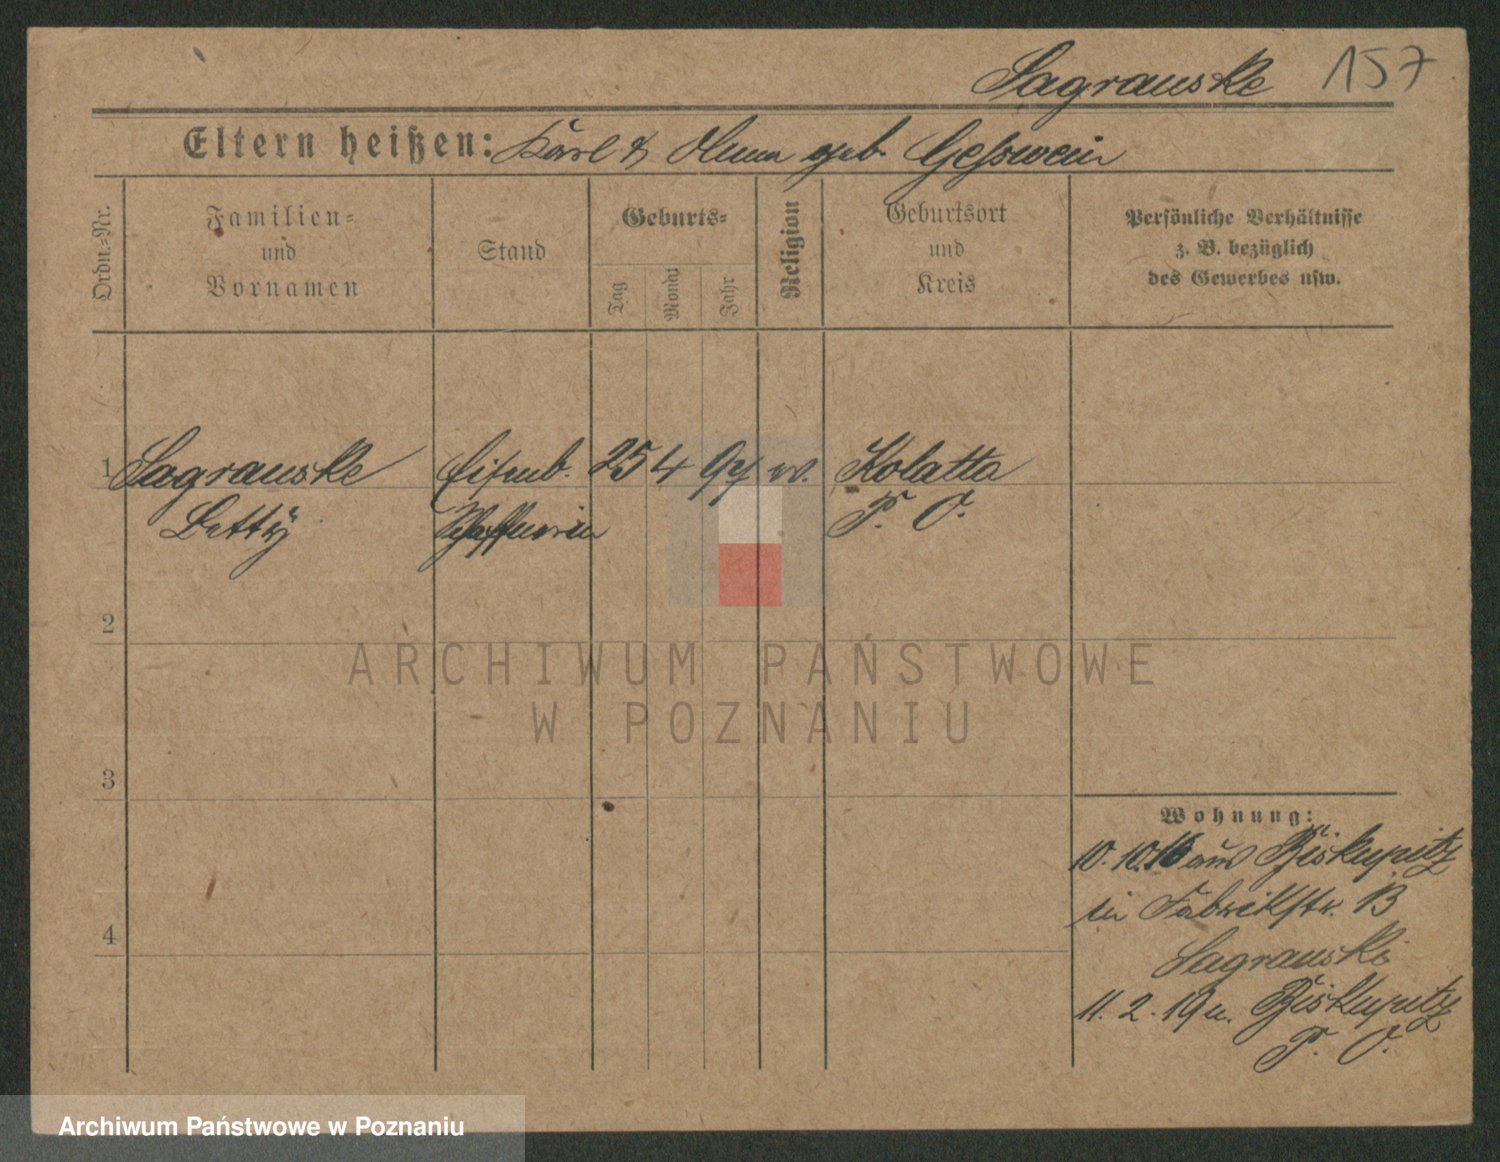 Sagrauske 157
Eltern heißen: Karl & geb. Geßwein
Ordn.-Nr.
Familien-
und
Vornamen
Stand
Geburts-
Tag
Monat
Jahr
Religion
Geburtsort
und
Kreis
Persönliche Verhältnisse
z. B. bezüglich
des Gewerbes usw.
1 Sagrauske Eisenb. 25 4 97 ev. Kolatta
Betty Schaffnerin P. O.
2
3
4
Wohnung:
10.10.16 aus Biskupitz
in Fabrikstr. 13
Sagrauski
11. 2. 19 n. Biskupitz
P. O.
ARCHIWUM PAŃSTWOWE
W POZNANIU
Archiwum Państwowe w Poznaniu